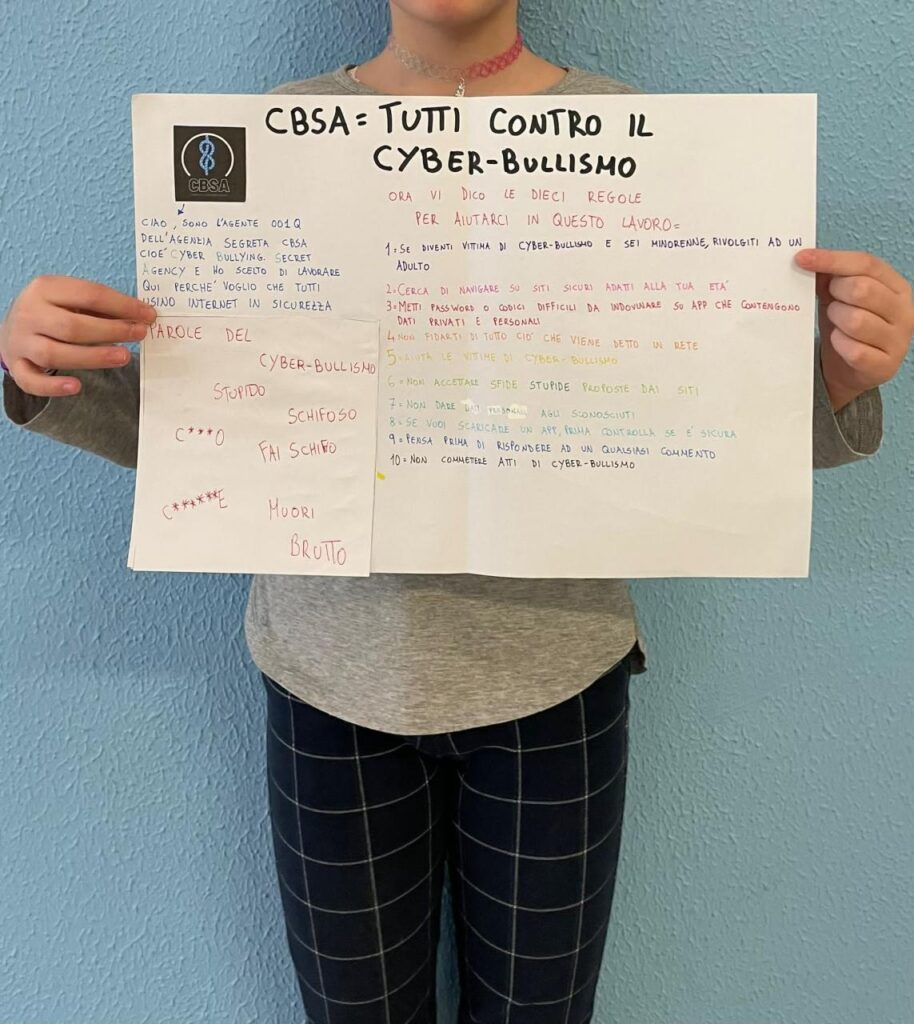 CBSA = TUTTI CONTRO IL
CYBER-BULLISMO
CBSA
CIAO, SONO L'AGENTE 001Q
DELL'AGENZIA SEGRETA CBSA
CIOE' CYBER BULLYING. SECRET
AGENCY E HO SCELTO DI LAVORARE
QUI PERCHE' VOGLIO CHE TUTTI
USINO INTERNET IN SICUREZZA
PAROLE DEL
CYBER-BULLISMO
STUPIDO
SCHIFOSO
C***O
FAI SCHIFO
C******E
MUORI
BRUTTO
ORA VI DICO LE DIECI REGOLE
PER AIUTARCI IN QUESTO LAVORO=
1= SE DIVENTI VITTIMA DI CYBER-BULLISMO E SEI MINORENNE, RIVOLGITI AD UN
ADULTO
2= CERCA DI NAVIGARE SU SITI SICURI ADATTI ALLA TUA ETA'
3= METTI PASSWORD O CODICI DIFFICILI DA INDOVINARE SU APP CHE CONTENGONO
DATI PRIVATI E PERSONALI
4= NON FIDARTI DI TUTTO CIO' CHE VIENE DETTO IN RETE
5= AIUTA LE VITTIME DI CYBER-BULLISMO
6= NON ACCETTARE SFIDE STUPIDE PROPOSTE DAI SITI
7= NON DARE DATI PERSONALI AGLI SCONOSCIUTI
8= SE VUOI SCARICARE UN APP, PRIMA CONTROLLA SE E' SICURA
9= PENSA PRIMA DI RISPONDERE AD UN QUALSIASI COMMENTO
10= NON COMMETERE ATTI DI CYBER-BULLISMO